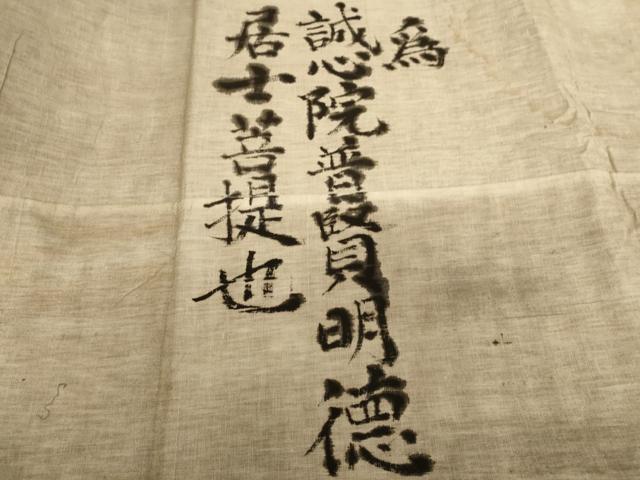 為
誠心院普賢明德
居士菩提也